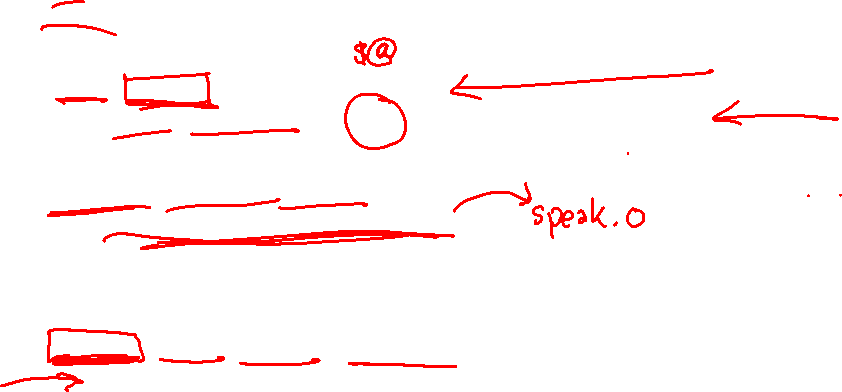 $@
speak.o